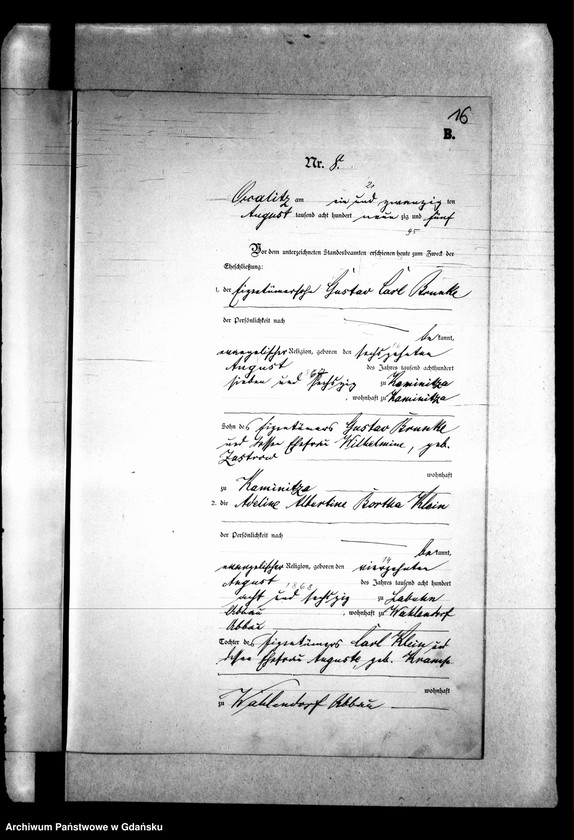 16
B.
Nr. 8.
21
Occalitz am ein und zwanzig ten
August tausend acht hundert neun zig und fünf
95
Vor dem unterzeichneten Standesbeamten erschienen heute zum Zweck der
Eheschließung:
1. der Eigentümersohn Gustav Carl Brunke
der Persönlichkeit nach
bekannt,
evangelischer Religion, geboren den sechszehnten
August des Jahres tausend achthundert
sieben und sechszig zu Kaminitza
, wohnhaft zu Kaminitza
Sohn des Eigentümers Gustav Brunke
und dessen Ehefrau Wilhelmine, geb.
Zastrow
wohnhaft
zu Kaminitza
2. die Adeline Albertine Bertha Klein
der Persönlichkeit nach
bekannt,
14
evangelischer Religion, geboren den vierzehnten
August des Jahres tausend acht hundert
1868
acht und sechszig zu Labuhn
Abbau , wohnhaft zu Wahlendorf
Abbau
Tochter des Eigentümers Carl Klein und
dessen Ehefrau Auguste, geb.
wohnhaft
zu Wahlendorf Abbau
Archiwum Państwowe w Gdańsku